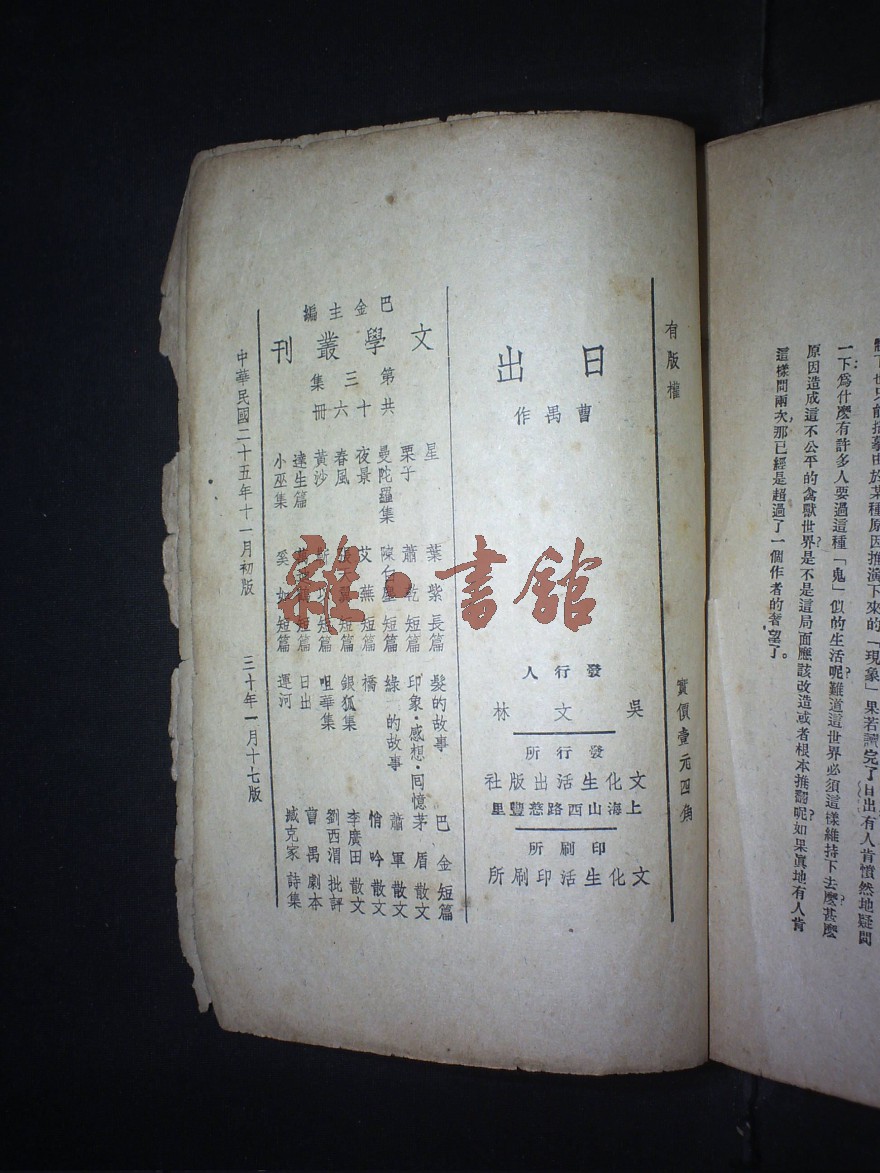 有版權
實價壹元四角
日出
曹禺作
發行人
吳文林
發行所
文化生活出版社
上海山西路慈豐里
印刷所
文化生活印刷所
巴金主編
文學叢刊
第三集
共十六冊
星 葉紫 長篇
栗子 蕭乾 短篇
曼陀羅集 陳白塵 短篇
夜景 艾蕪 短篇
春風 張天翼 短篇
黃沙 短篇
達生篇 短篇
小巫集 奚如 短篇
髮的故事 巴金 短篇
印象·感想·回憶 茅盾 散文
綠的故事 蕭軍 散文
橋 悄吟 散文
銀狐集 李廣田 散文
咀華集 劉西渭 批評
日出 曹禺 劇本
運河 臧克家 詩集
中華民國二十五年十一月初版
三十年一月十七版
雜·書館
由於某種原因推演下來的「現象」果若讀完了日出有人肯憤然地疑問
一下爲什麼有許多人要過這種「鬼」似的生活呢?難道這世界必須這樣維持下去麼?甚麼
原因造成這不公平的禽獸世界?是不是這局面應該改造或者根本推翻呢?如果眞地有人肯
這樣問兩次,那已經是超過了一個作者的奢望了。